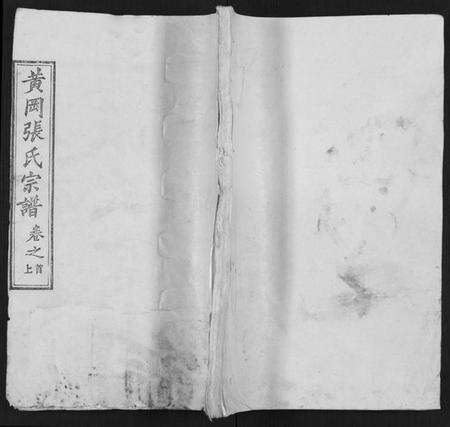 黃岡張氏宗譜卷之首上